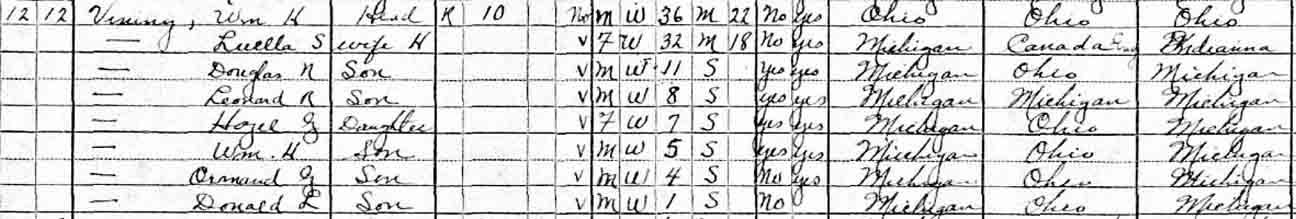 12 12 Vining, Wm H Head R 10 No M W 36 M 22 No Yes Ohio Ohio Ohio
— Luella S wife H v F W 32 M 18 No Yes Michigan Canada Eng Indianna
— Douglas N Son v M W 11 S yes yes Michigan Ohio Michigan
— Leonard R Son v M W 8 S yes yes Michigan Michigan Michigan
— Hazel G Daughter v F W 7 S yes yes Michigan Ohio Michigan
— Wm. H Son v M W 5 S yes yes Michigan Ohio Michigan
— Ormand G Son v M W 4 S No yes Michigan Ohio Michigan
— Donald L Son v M W 1 S No Michigan Ohio Michigan